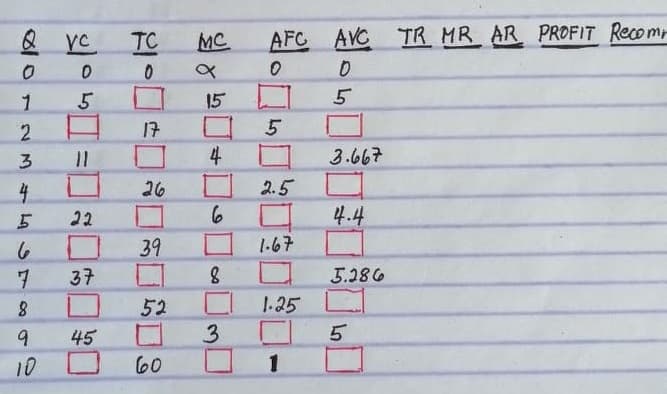 Q VC TC MC AFC AVC TR MR AR PROFIT Recomm
0 0 0 α 0 0
1 5 15 5
2 17 5
3 11 4 3.667
4 26 2.5
5 22 6 4.4
6 39 1.67
7 37 8 5.286
8 52 1.25
9 45 3 5
10 60 1